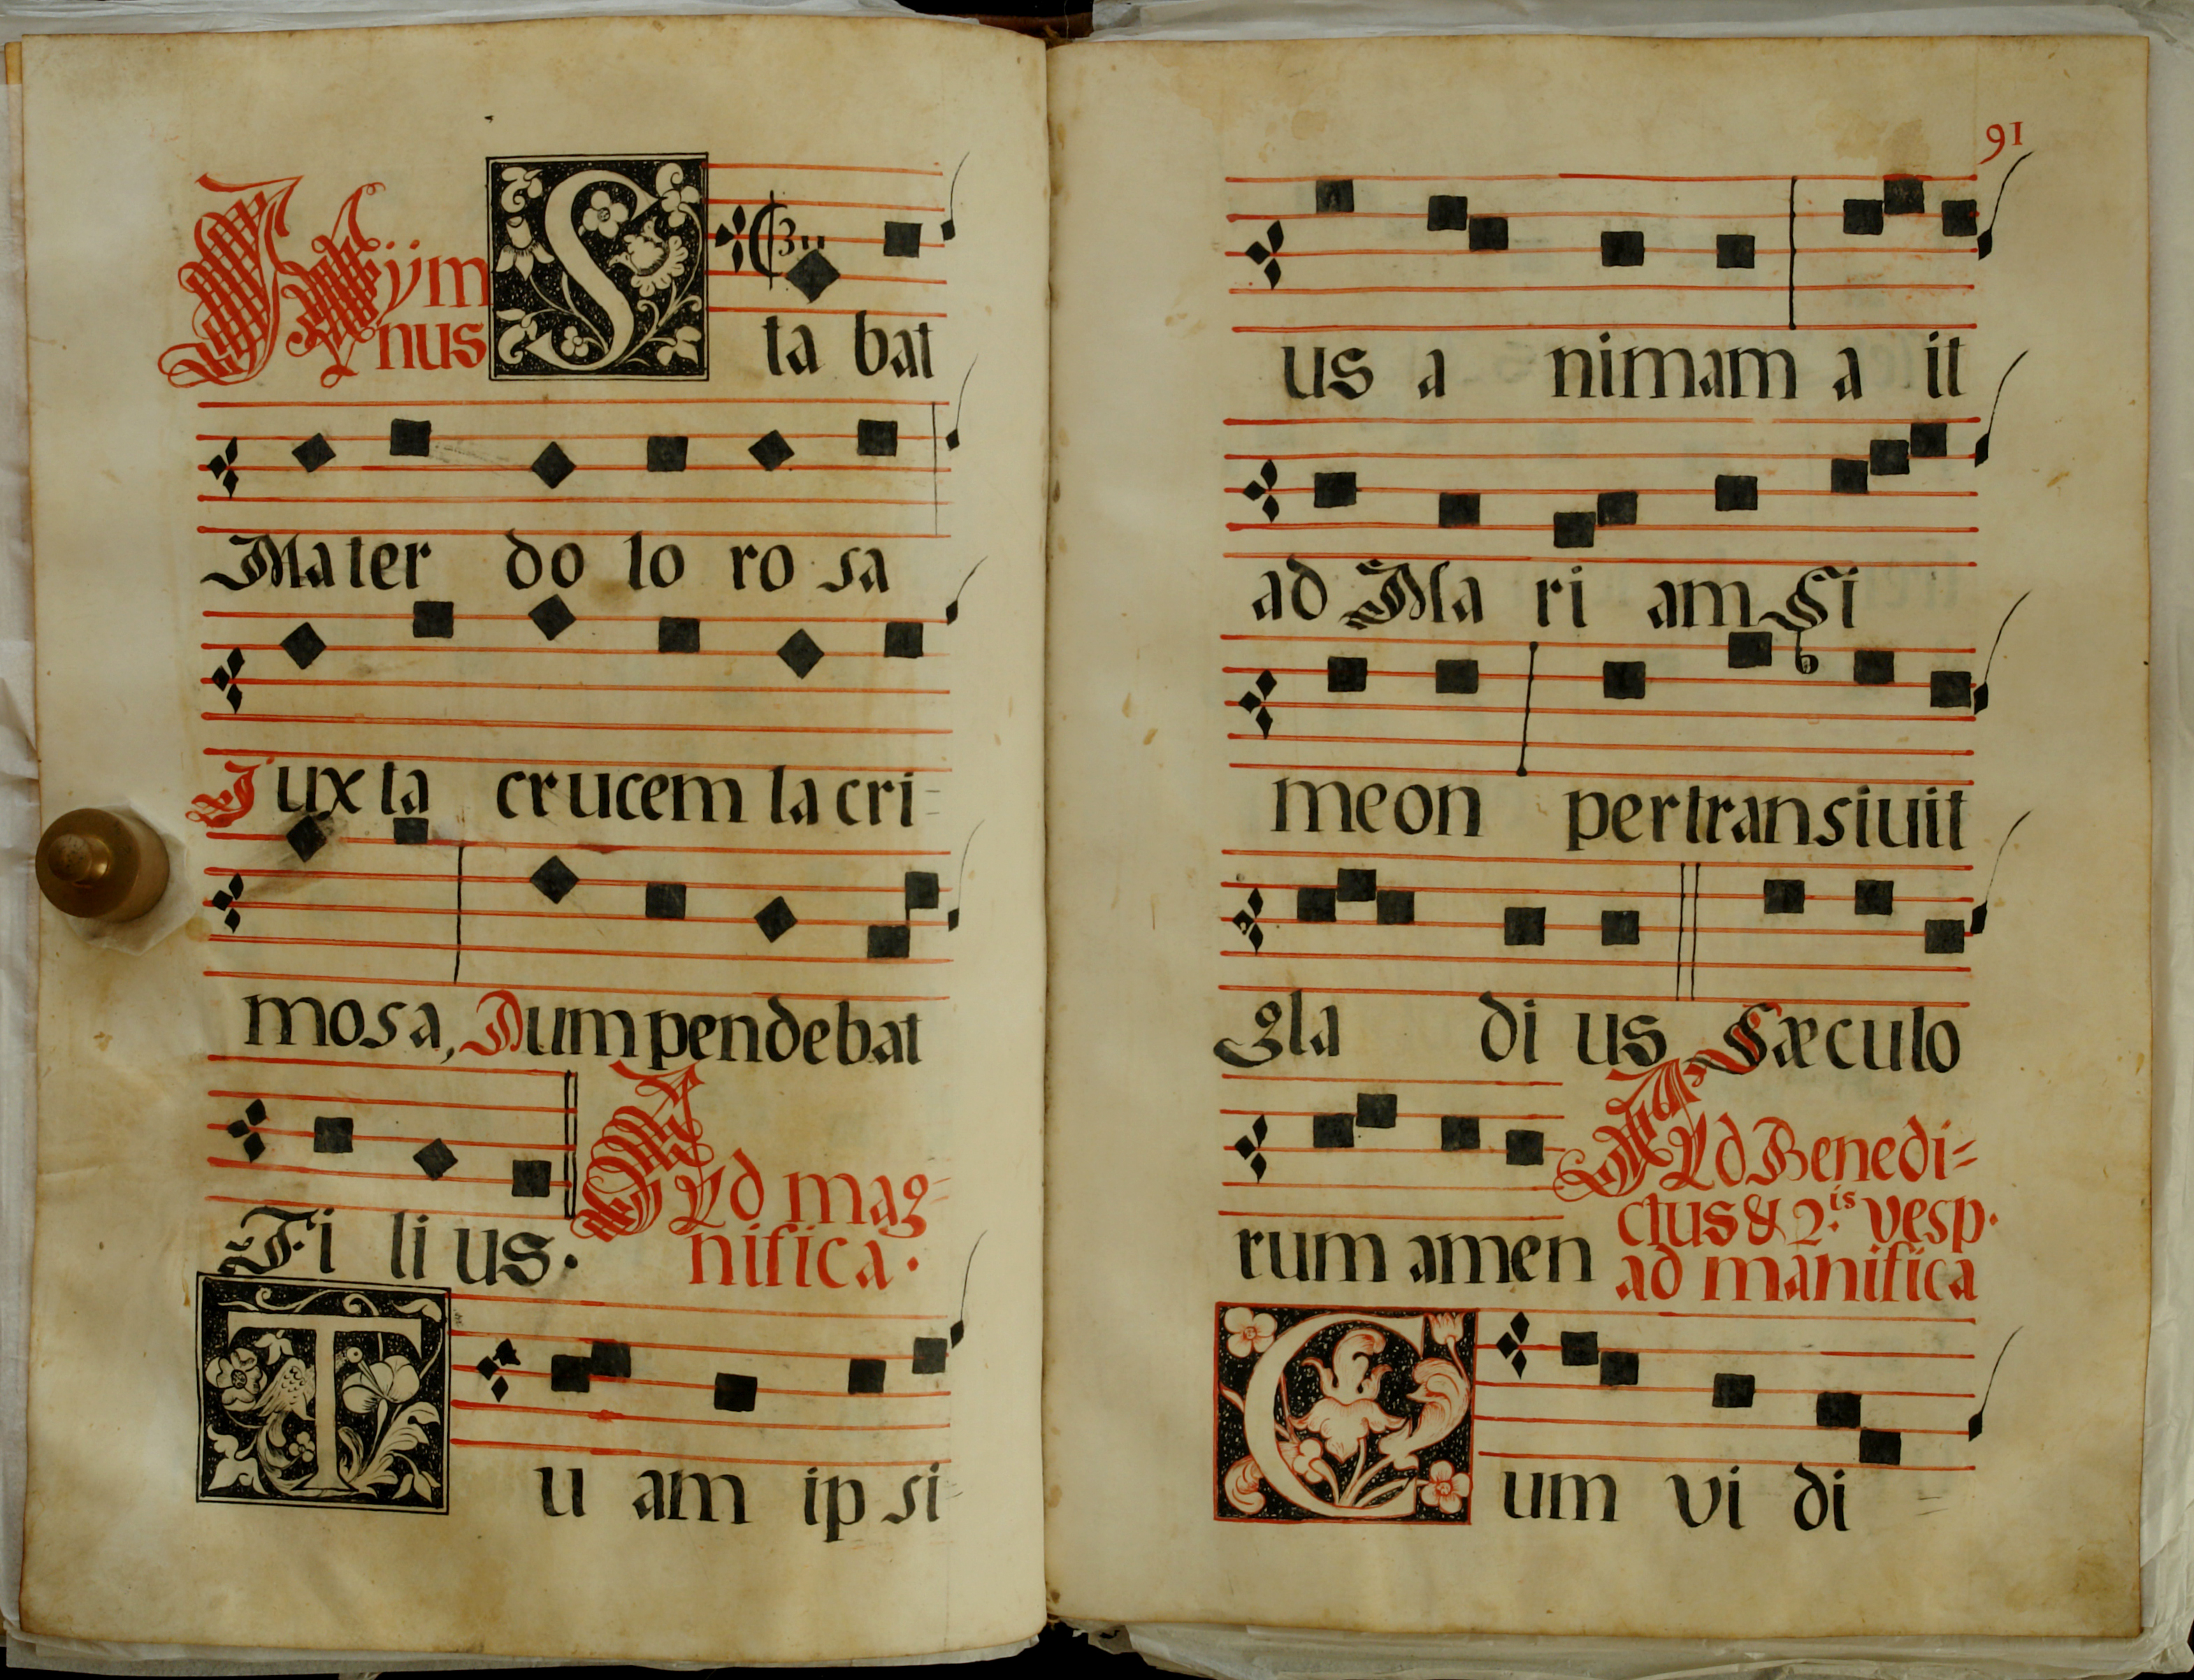 Hym
nus
S ta bat
Mater do lo ro sa
Juxta crucem la cri=
mosa, Dum pendebat
Fi li us.
Ad mag=
nifica.
T u am ip si=
91
us a nimam a it
ad Ma ri am Si
meon pertransiuit
gla di us Sæculo
rum amen
Ad Benedi=
ctus & 2.is vesp.
ad manifica
C um vi di =